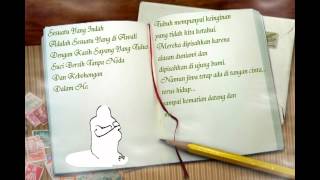 Sesuatu Yang Indah
Adalah Sesuatu Yang di Awali
Dengan Kasih Sayang Yang Tulus
Suci Bersih Tanpa Noda
Dan Kebohongan
Dalam
Tubuh mempunyai keinginan
yang tidak kita ketahui.
Mereka dipisahkan karena
alasan duniawi dan
dipisahkan di ujung bumi.
Namun jiwa tetap ada di tangan cinta,
terus hidup...
sampai kematian datang dan